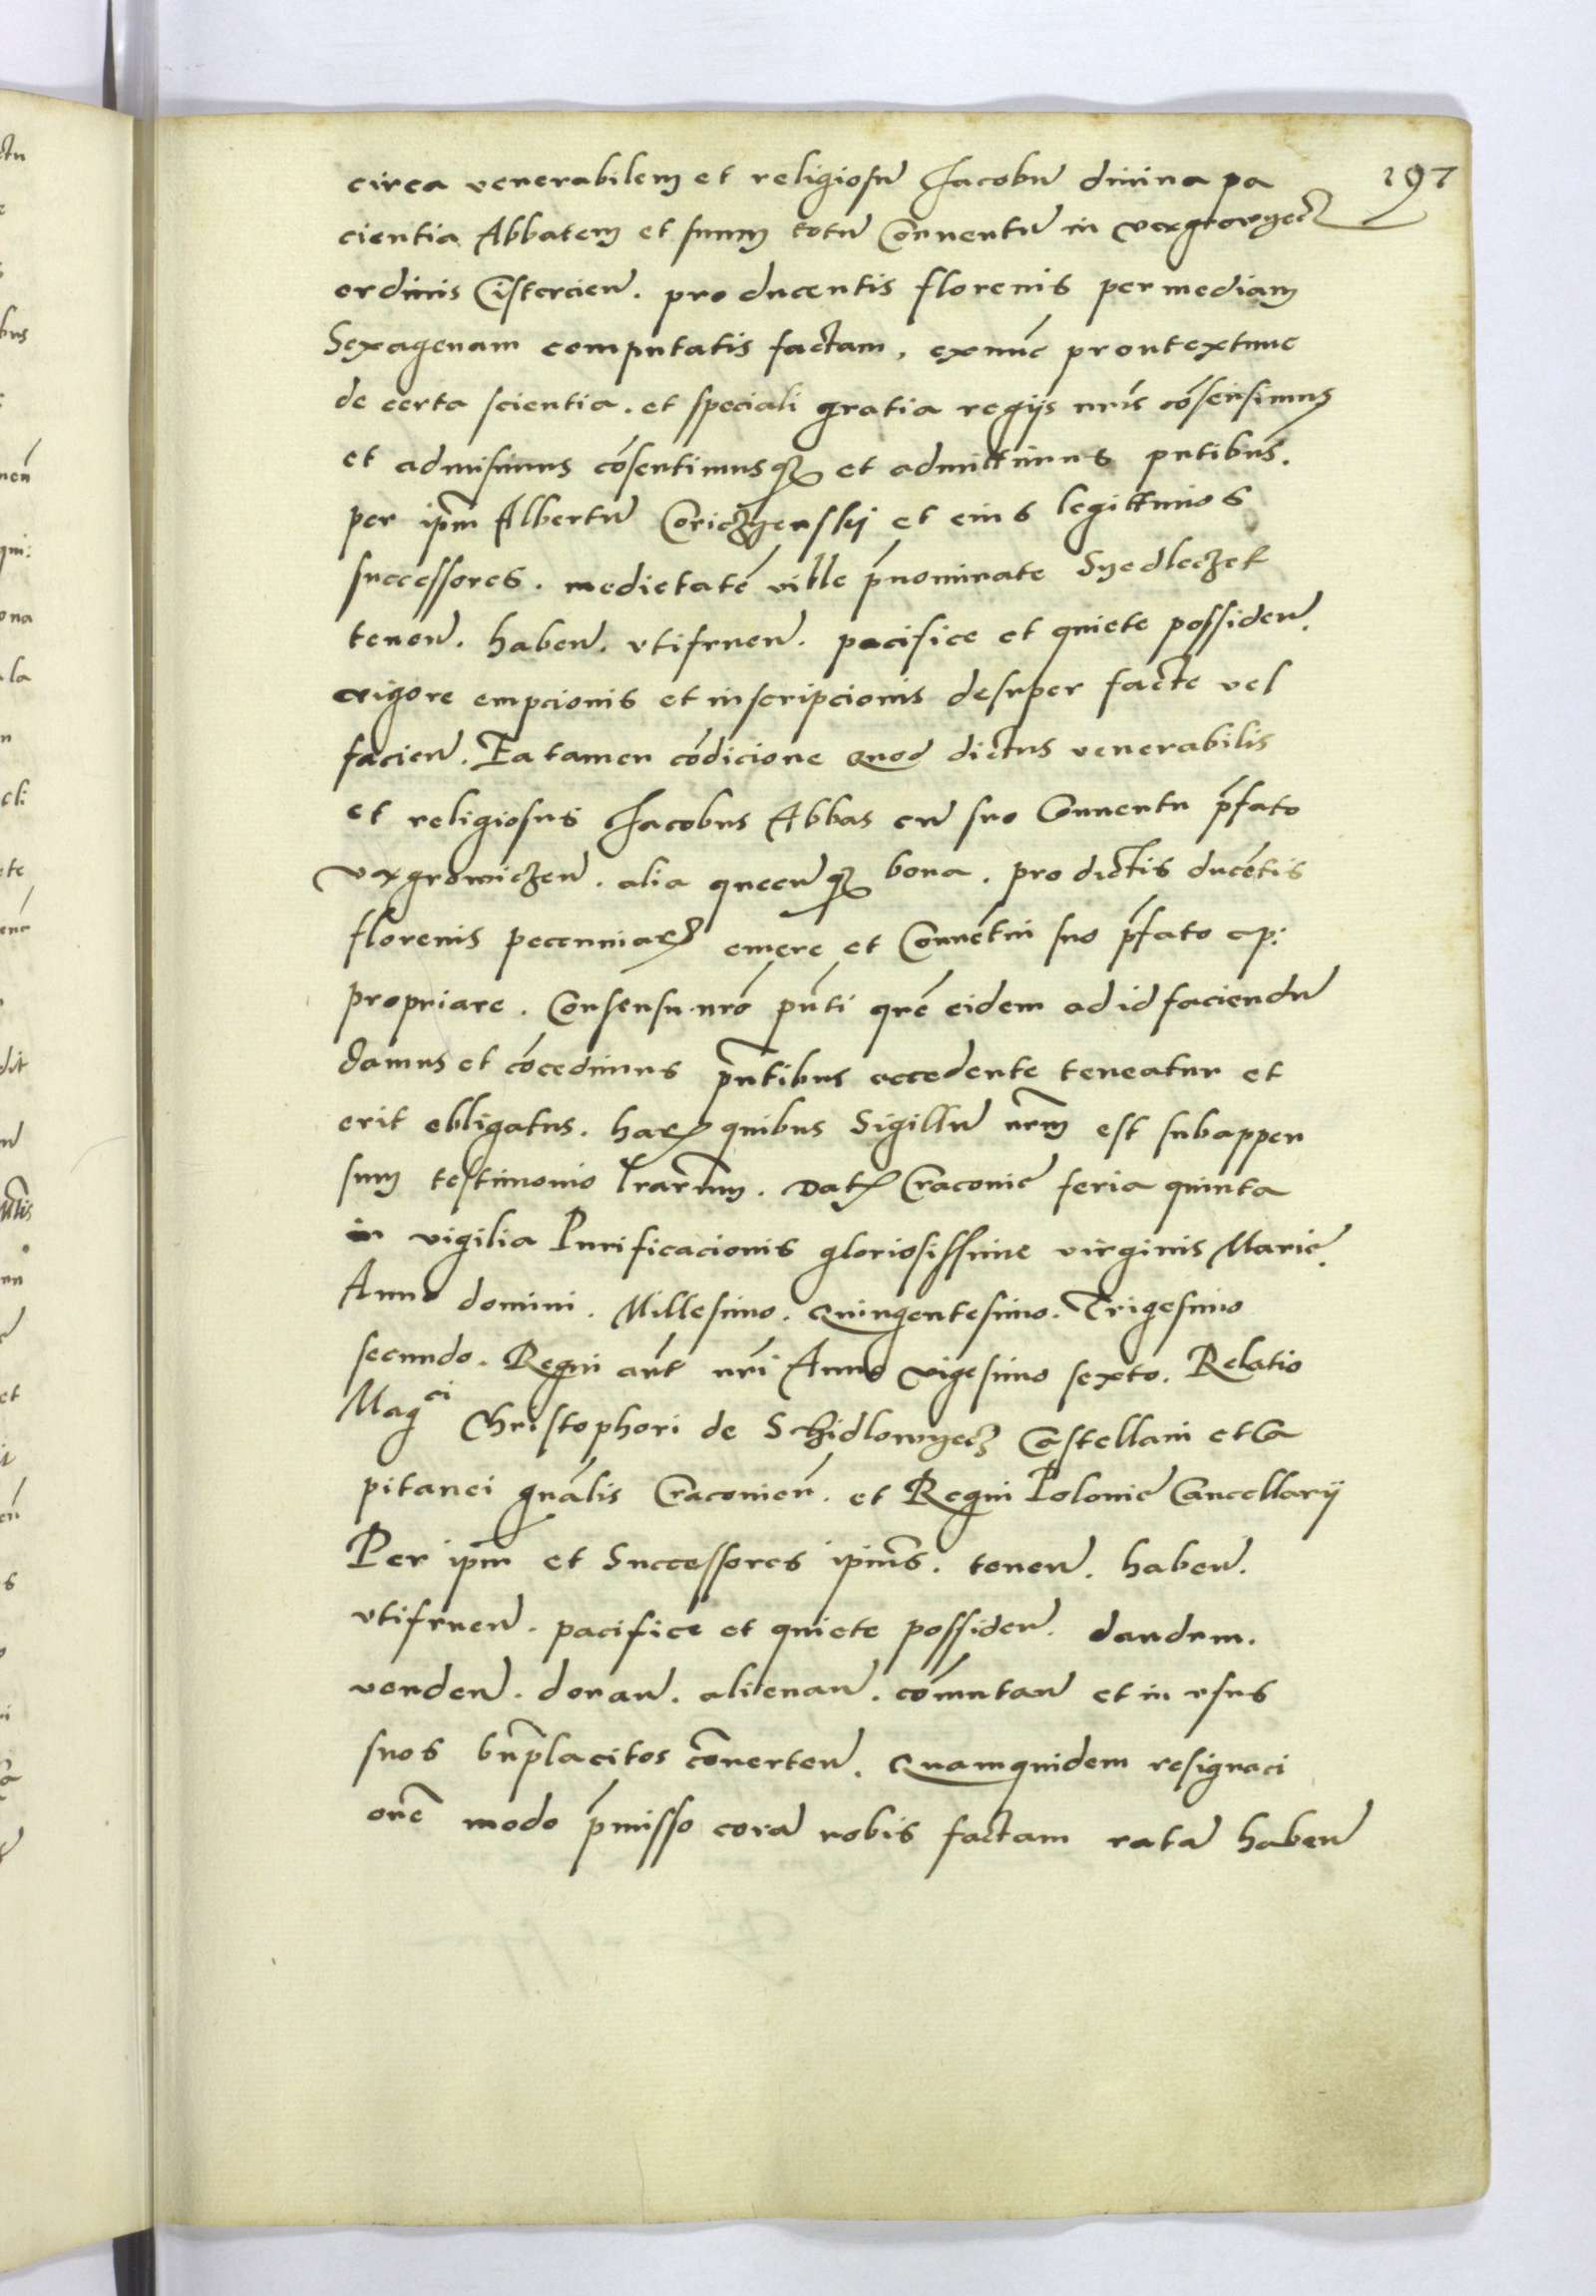 197
circa venerabilem et religiosū Jacobū diuina pa
cientia Abbatem et suum totū Conuentū in Vaxgrowyecz
ordinis Cisterciēn. pro ducentis florenis per mediam
Sexagenam computatis factam, ex nūc prout extunc
de certa scientia. et speciali gratia regijs nr̄is cōsensimus
et admisimus cōsentimusqȝ et admittimus pn̄tibus.
per ip̄m Albertū Coriczyenskij et eius legittimos
successores. medietatē ville p̄nominate Syedleczek
tenēn. habēn. vtifruēn. pacifice et quiete possidēn.
vigore empcionis et inscripcionis desuper facte vel
faciēn. Ea tamen cōdicione Quod dictus venerabilis
et religiosus Jacobus Abbas cū suo Conuentu p̄fato
Vaxgrowiczeñ. alia quecūqȝ bona. pro dictis ducētis
florenis pecuniarꝝ emere et Conuētui suo p̄fato ap:
propriare. Consensu nr̄o pn̄ti que̅ eidem ad id faciendū
damus et cōcedimus pn̄tibus accedente teneatur et
erit obligatus. harꝝ quibus Sigillū nr̄m est subappen
sum testimonio lr̄arum. Datꝝ Cracouie feria quinta
in vigilia Purificacionis gloriosissime virginis Marie.
Anno domini. Millesimo. Quingentesimo. Trigesimo
secundo. Regni aūt nr̄i Anno vigesimo sexto. Relatio
Magci Christophori de Schidlowyecz Castellani et Ca
pitanei gnālis Cracouieñ. et Regni Polonie Cancellarij
Per ip̄m et Successores ipius̄. tenēn. habēn.
vtifruēn. pacifice et quiete possidēn. dandum.
vendēn. donān. alienān. cōmutān et in vsus
suos bn̄placitos cōuertēn. Quamquidem resignaci
onē modo p̄misso corā nobis factam ratā habēn